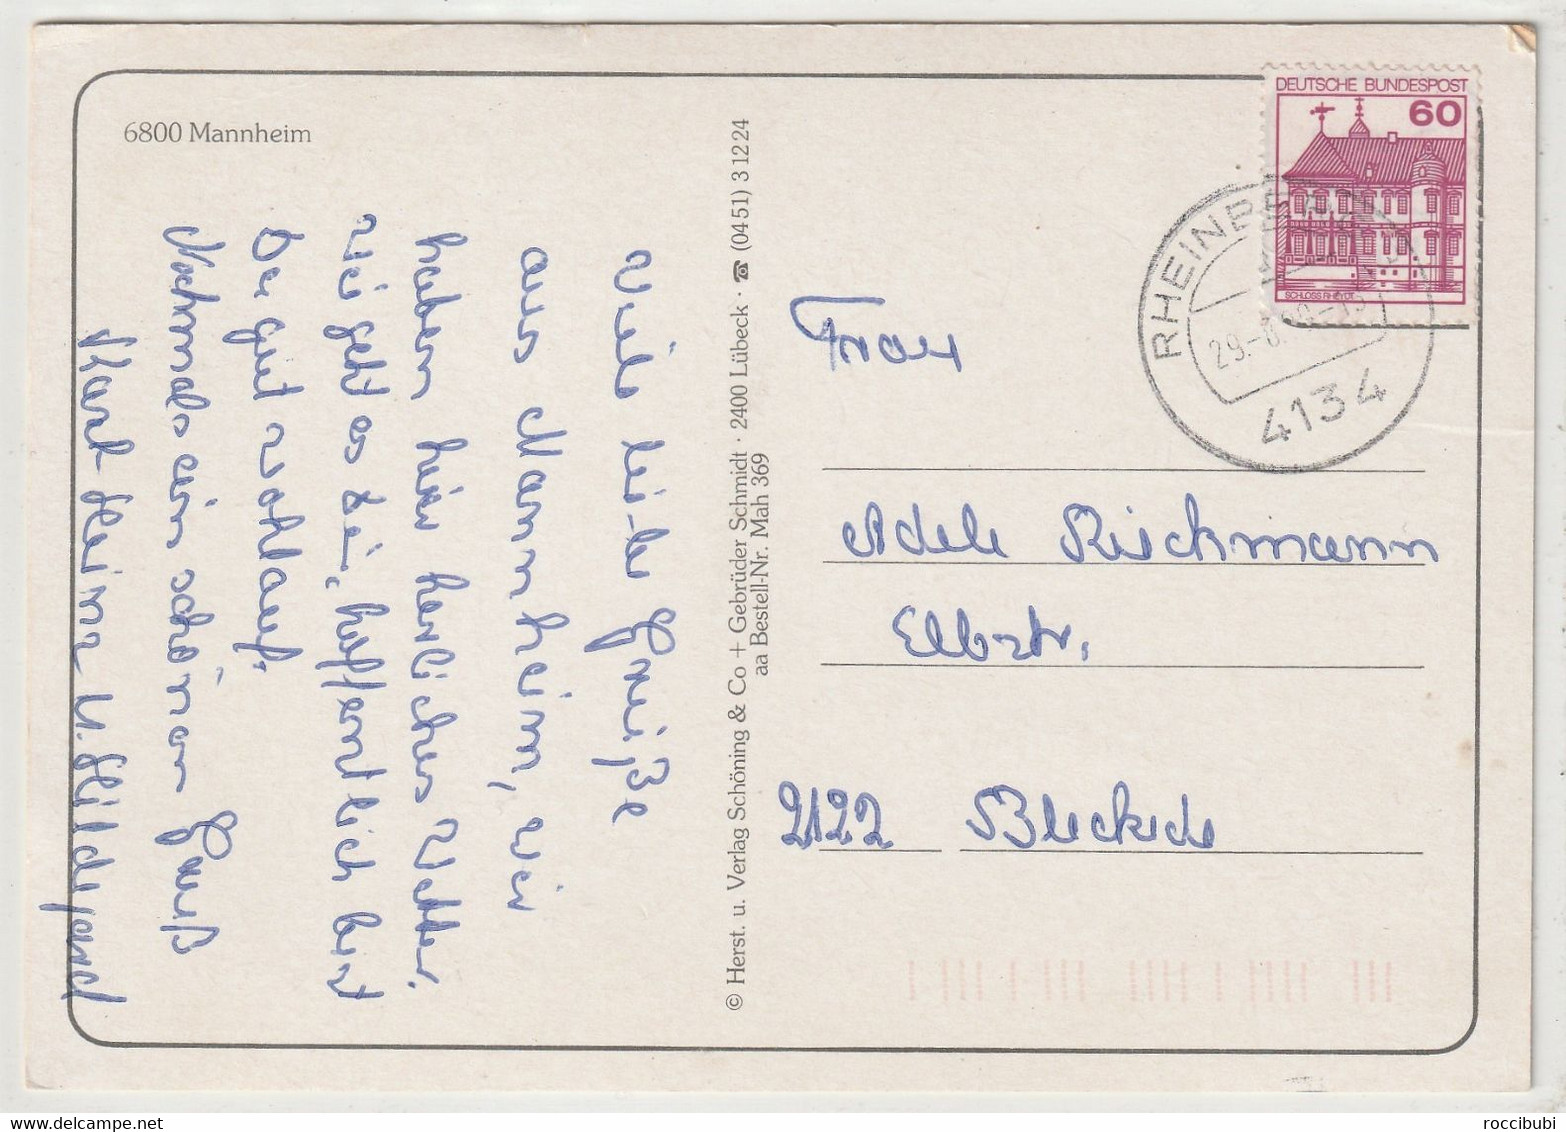 6800 Mannheim
Viele liebe Grüße
aus Mannheim, wir
haben hier herliches Wetter.
Wie geht es Dir, hoffentlich bist
Du gut wohlauf.
Nochmals ein schönen Gruß
Karl-Heinz u. Hildegard
© Herst. u. Verlag Schöning & Co + Gebrüder Schmidt · 2400 Lübeck · ☎ (04 51) 3 12 24
aa Bestell-Nr. Mah 369
DEUTSCHE BUNDESPOST
60
SCHLOSS RHEYDT
RHEINBERG
29.-8.
4134
Frau
Adele Rieckmann
Elbstr.
2122 Bleckede
roccibubi